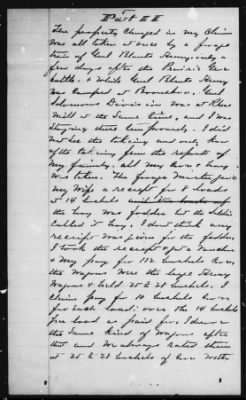 Part II
The property charged in my Claim
was all taken at once by a forage
train of Genl Blunts Army, only a
few days after the Prairie Grove
battle. & while Genl Blunts Army
was camped at Boonsboro. Genl
Salomons Division was at Rhea
Mill at the same time, and I was
staying there temporarily. I did
not see the taking and only know
of the taking from the report of
my family. all my corn & hay
was taken. The forage Master gave
my wife a receipt for 8 loads
at 14 bushels
the hay was fodder but the soldiers
called it hay. I don't think any
receipt was given for the fodder.
I took the receipt to
& my pay for 112 bushels corn,
the wagons were the large Army
wagons & held 25 to 28 bushels. I
claim pay for 10 bushels more
for each load: over the 14 bushels
per load as paid for. I drove
the same kind of wagons after
that and we always rated them
at 25 to 28 bushels of corn